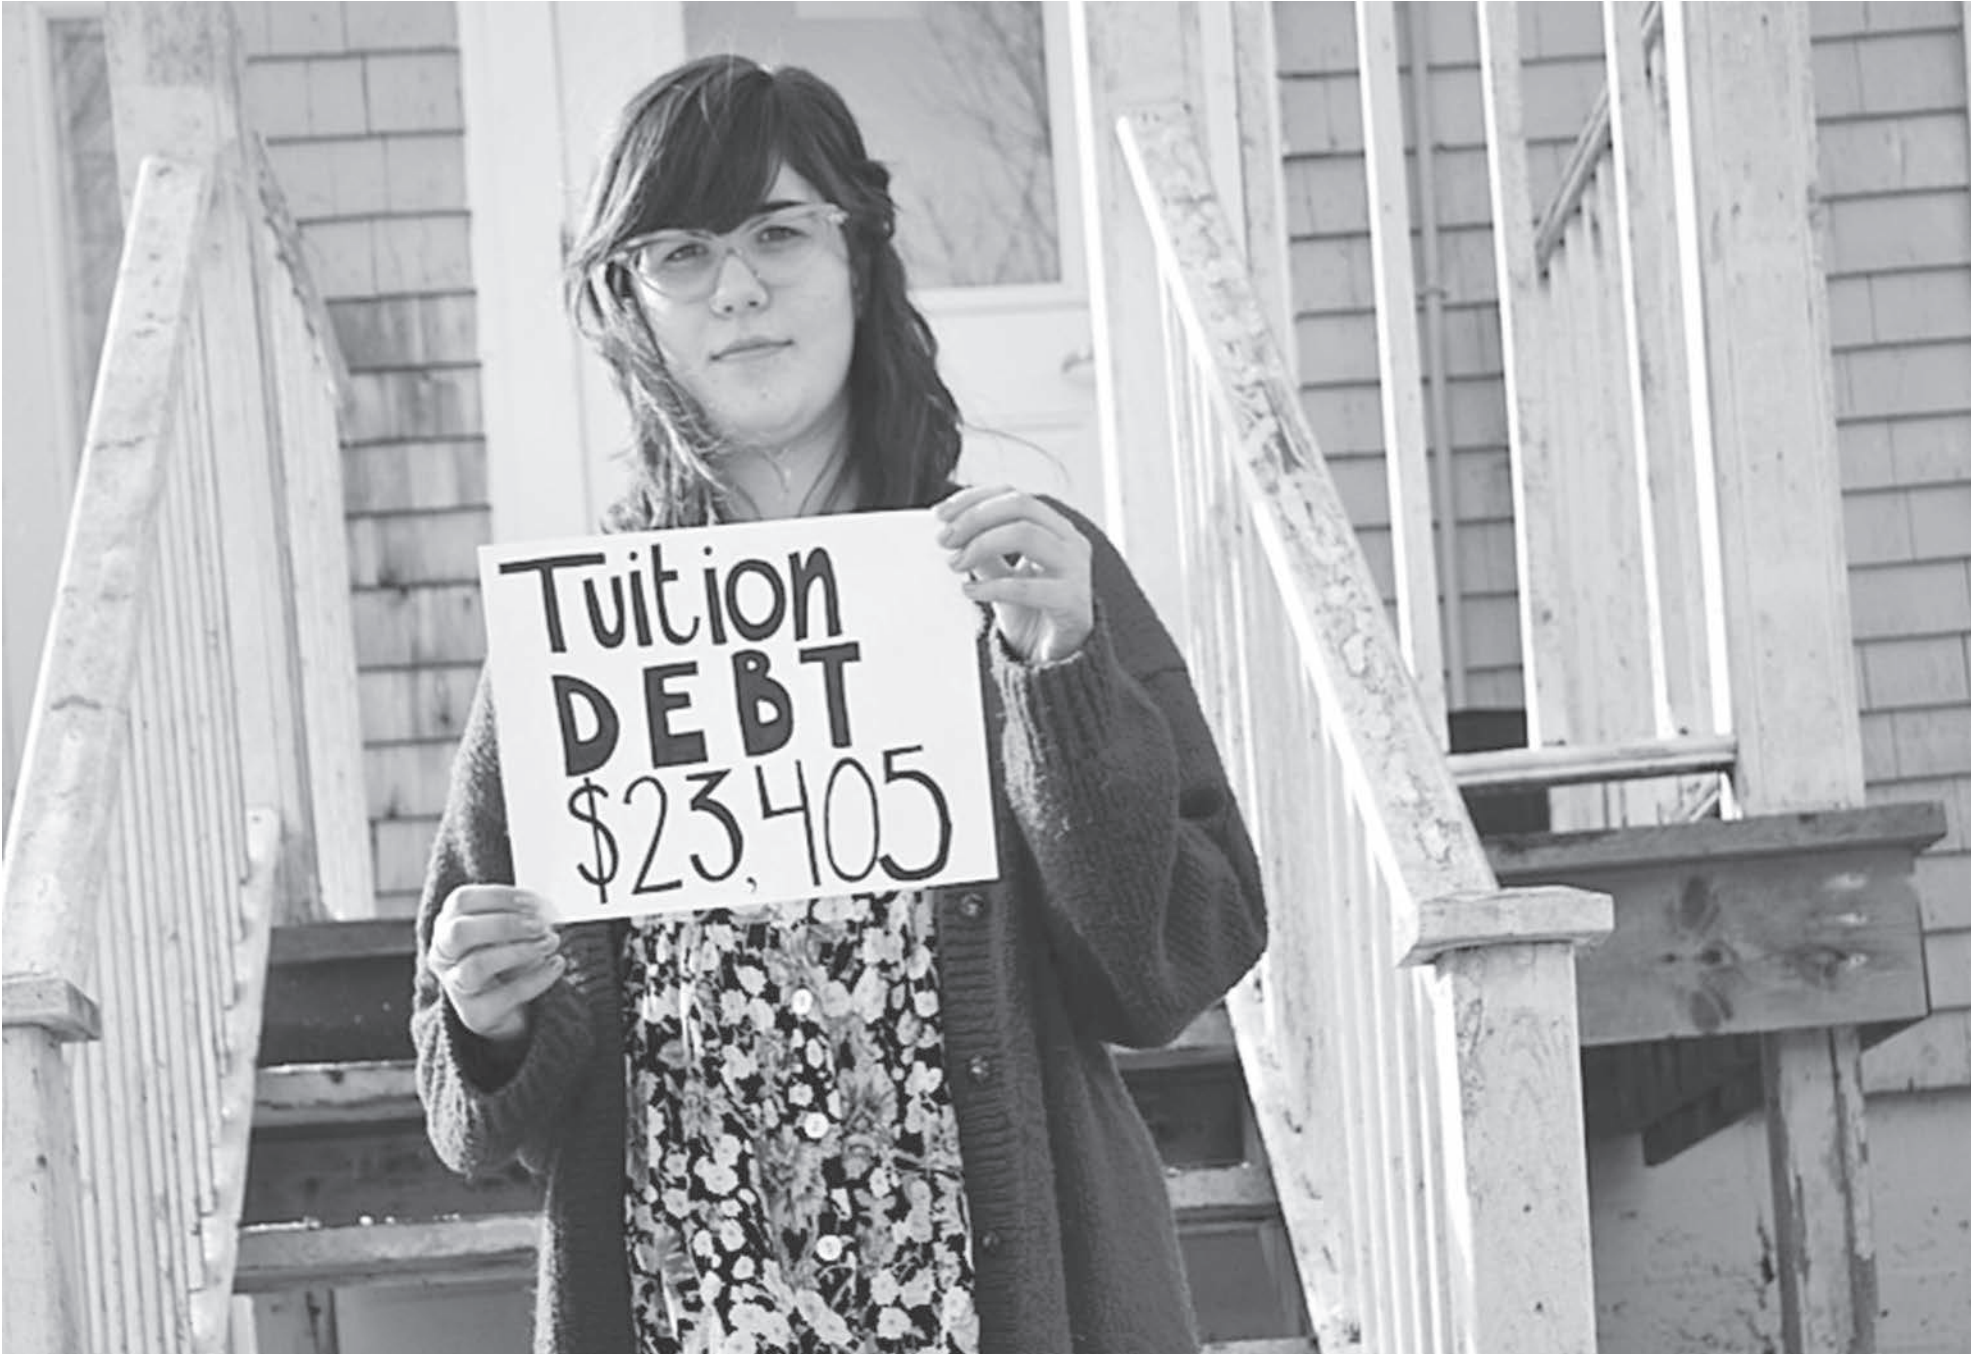 Tuition
DEBT
$23,405